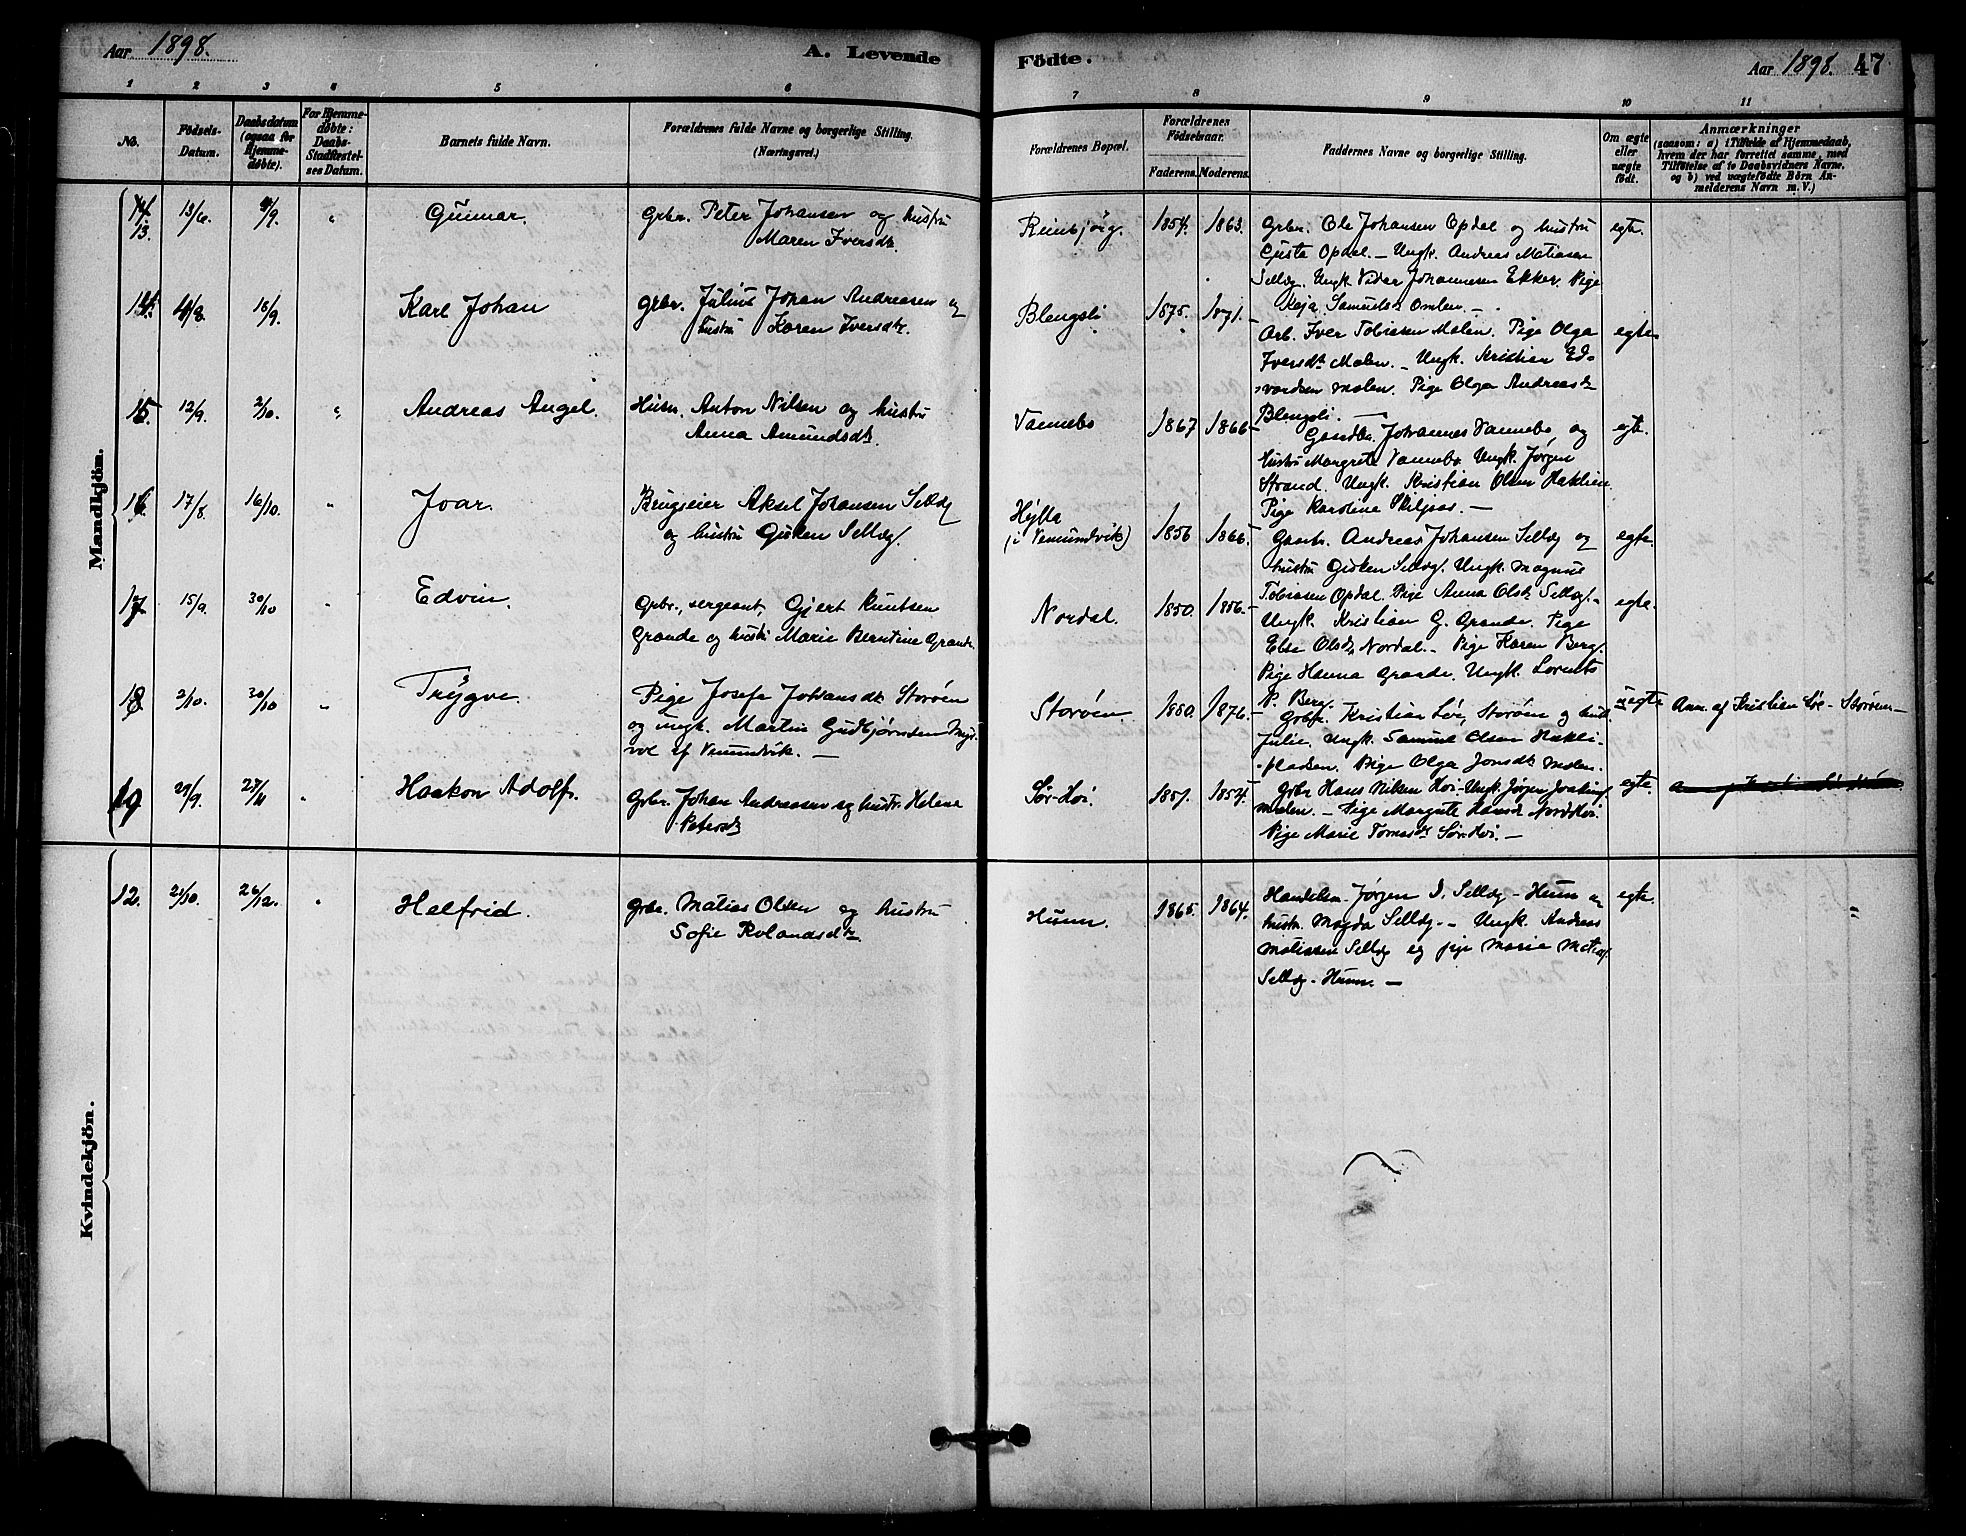 Aar 1898.
A. Levende
Födte.
Aar 1898. 47
1 2 3 4 5 6 7 8 9 10 11
No.
Födsels-
Datum.
Daabsdatum
(ogsaa for
Hjemme-
döbte).
For Hjemme-
döbte:
Daabs-
Stadfæstel-
ses Datum.
Barnets fulde Navn.
Forældrenes fulde Navne og borgerlige Stilling.
(Næringsvei.)
Forældrenes Bopæl.
Forældrenes
Födselsaar.
Faderens. Moderens.
Faddernes Navne og borgerlige Stilling.
Om ægte
eller
uægte
födt.
Anmærkninger
(saasom: a) i Tilfælde af Hjemmedaab,
hvem der har forrettet samme, med
Tilføtelse af to Daabsvidners Navne,
og b) ved uægtefödte Börn An-
melderens Navn m. V.)
Mandkjön.
13. 13/6 /9. " Gunnar. Grbr. Peter Johansen og hustru
Maren Iversdtr.
Reinbjørg. 1854. 1863.
Grbr. Ole Johansen Opdal og hustru
Gusta Opdal. — Ungk. Andreas Matiasen
Selläg. Ungk. Vidar Johannesen Ekker. Pige
Kaja Samuelsdtr Omlen. —
egte.
14. /8 18/9. Karl Johan Grbr. Julius Johan Andreasen og
hustru Karen Iversdtr.
Blengsli 1875. 1871.
Arb. Iver Tobiasen Molen. Pige Olga
Iversdtr Moen. — Ungk. Kristian Ed-
vardsen Molen. Pige Olga Andreasdtr
Blengsli. —
egte
15. 12/9. 2/10. " Andreas Angel. Husm. Anton Nilsen og hustru
Anna Amundsdtr.
Vannebo 1867 1866
Gaardbr. Johannes Vannebo og
hustru Margrete Vannebo. Ungk. Jørgen
Strand. Ungk. Kristian Olsen Haklien
Pige Karoline Skiljaas. —
egte.
16. 17/8. 16/10. " Joar. Brugseier Aksel Johansen Selläg
og hustru Gisken Selläg.
Hylla
(i Vemundvik) 1856 1866
Gaarbr. Andreas Johansen Selläg og
hustru Gisken Selläg. Ungk. Magnus
Tobiasen Opdal. Pige Anna Olsdtr Selläg. —
egte.
17. 15/9. 30/10 " Edvin. Grbr., sergeant, Gjert Knutsen
Grande og hustru Marie Berntine Grande.
Nordal. 1850. 1856.
Ungk. Kristian G. Grande. Pige
Else Olsdtr Nordal. — Pige Karen Berg.
Pige Hanna Grande. Ungk. Lornts
P. Berg.
egte.
18. 2/10. 30/10 " Trygve. Pige Josefa Johansdtr Storöen
og ungk. Martin Gudbjørnsen
af Vemundvik. —
Storöen. 1880. 1876.
Grbfr. Kristian Sör, Storöen og hust.
Julie. Ungk. Samuel Olsen Hakli-
pladsen. Pige Olga Jonsdtr Molen.
uegte Anm. af Kristian Sör - Storöen —
19. 29/9. 27/11 " Haakon Adolf. Grbr. Johan Andreasen og hustr. Helene
Petersdtr
Sör-Høi. 1857. 1854.
Grbr Hans Nilsen Høi. Ungk. Jørgen
Molen. — Pige Margrete Hansdtr Nordhøi.
Pige Marie Tomasdtr Sör-Høi. —
egte.
Kvindekjön.
12. 21/10. 26/12. " Halfrid. Grbr. Matias Olsen og hustru
Sofie Rolandsdtr
Hunn. 1865. 1864.
Handelsm. Jørgen I. Selläg - Hunn og
hustr. Magda Selläg. — Ungk. Andreas
Matiasen Selläg og pige Marie
Selläg - Hunn. —
egte.